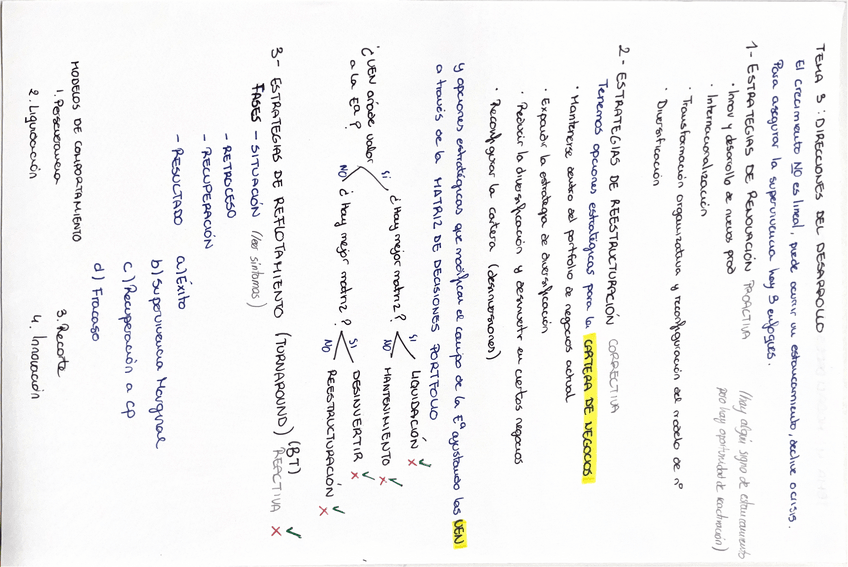 TEMA 3: DIRECCIONES DEL DESARROLLO
El crecimiento NO es lineal, puede ocurrir un estancamiento, declive o crisis.
Para asegurar la supervivencia hay 3 enfoques.
1- ESTRATEGIAS DE RENOVACIÓN PROACTIVA (hay algún signo de estancamiento
pero hay oportunidad de reactivación)
· Innov y desarrollo de nuevos prod
· Internacionalización
· Transformación organizativa y reconfiguración del modelo de nº
· Diversificación
2- ESTRATEGIAS DE REESTRUCTURACIÓN CORRECTIVA
Tenemos opciones estratégicas para la CARTERA DE NEGOCIOS:
· Mantenerse dentro del portfolio de negocios actual
· Expandir la estrategia de diversificación
· Reducir la diversificación y desinvertir en ciertos negocios
· Reconfigurar la cartera (desinversiones)
y opciones estratégicas que modifican el campo de la Eª ajustando las UEN
a través de la MATRIZ DE DECISIONES PORTFOLIO
¿UEN añade valor
a la Eª?
SI ¿Hay mejor matriz?
SI LIQUIDACIÓN ✓ x
NO MANTENIMIENTO ✓ x
NO ¿Hay mejor matriz?
SI DESINVERTIR ✓ x
NO REESTRUCTURACIÓN ✓ x
3- ESTRATEGIAS DE REFLOTAMIENTO (TURNAROUND) (BT) REACTIVA ✓ x
FASES - SITUACIÓN (ver síntomas)
- RETROCESO
- RECUPERACIÓN
- RESULTADO a) Éxito
b) Supervivencia Marginal
c) Recuperación a cp
d) Fracaso
MODELOS DE COMPORTAMIENTO
1. Perseverancia 3. Recorte
2. Liquidación 4. Innovación